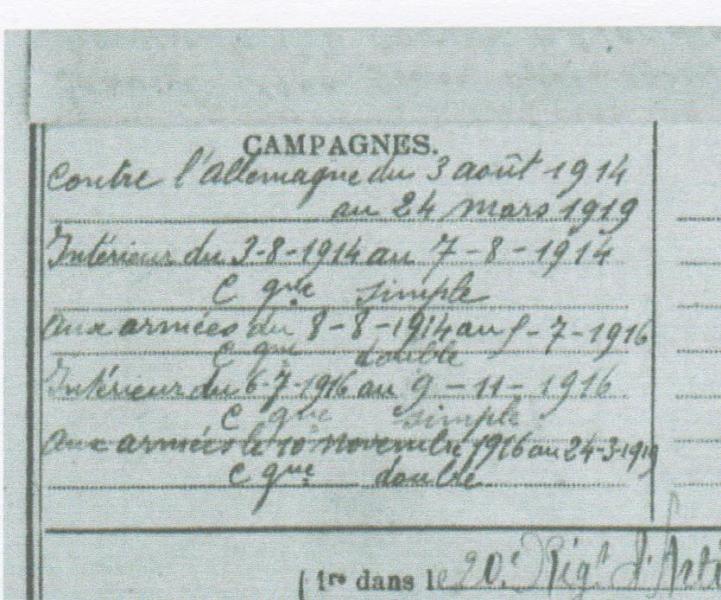 CAMPAGNES.
Contre l'Allemagne du 3 août 1914
au 24 mars 1919
Intérieur du 3-8-1914 au 7-8-1914
C gne simple
aux armées du 8-8-1914 au 5-7-1916
C gne double
Intérieur du 6-7-1916 au 9-11-1916
C gne simple
aux armées le 10 novembre 1916 au 24-3-1919
C gne double
(1re dans le 20e Rigt d'Arti